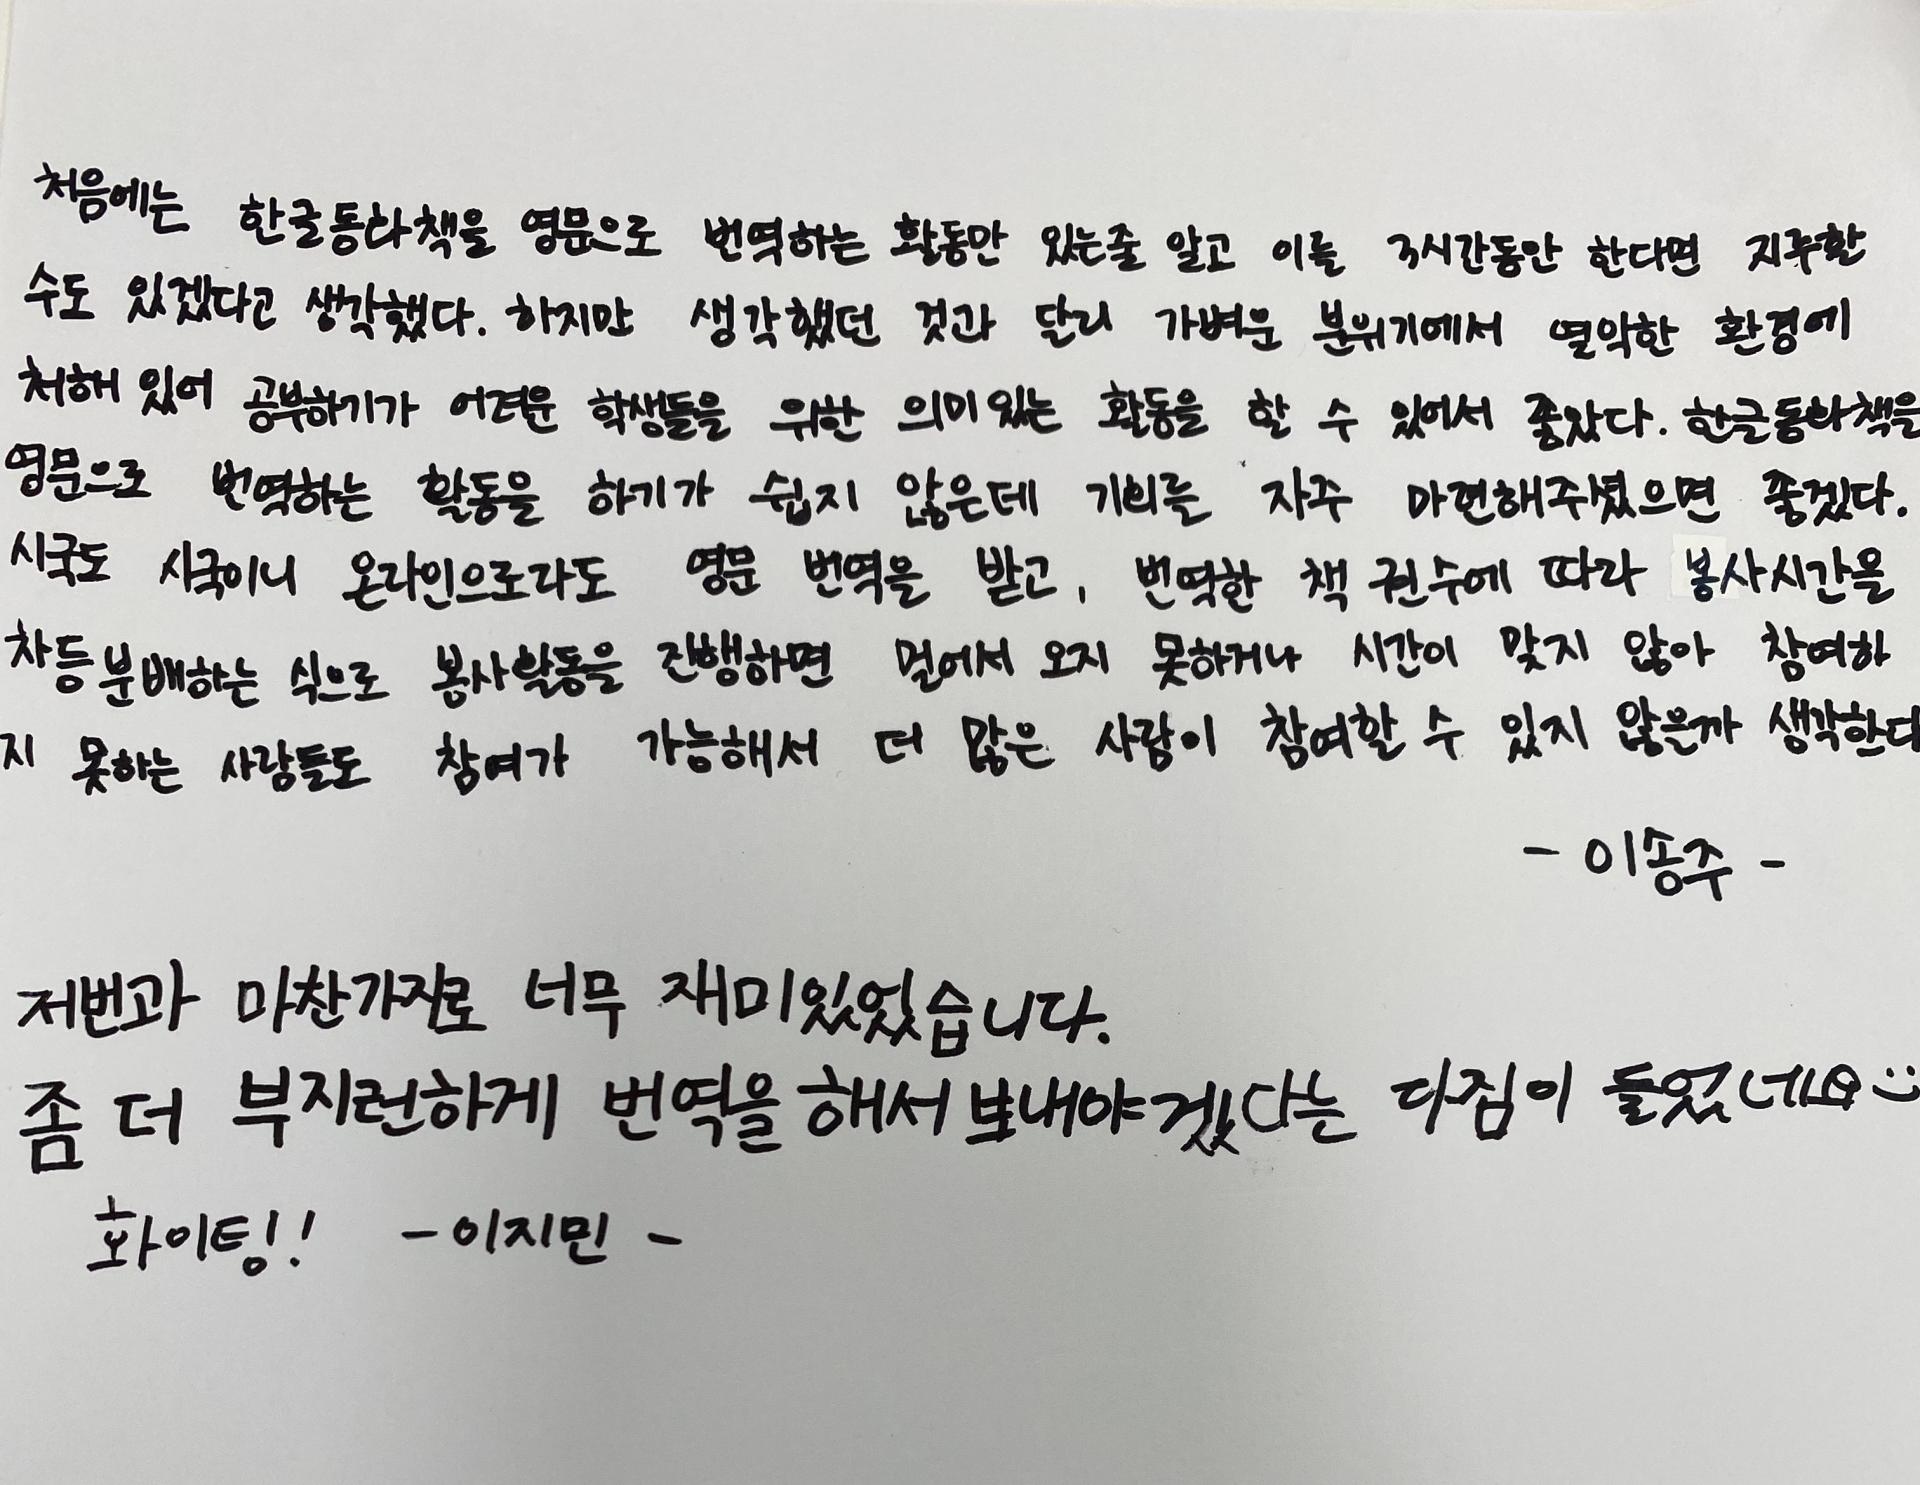 처음에는 한글동화책을 영문으로 번역하는 활동만 있는줄 알고 이를 3시간동안 한다면 지루할
수도 있겠다고 생각했다. 하지만 생각했던 것과 달리 가벼운 분위기에서 열악한 환경에
처해 있어 공부하기가 어려운 학생들을 위한 의미있는 활동을 할 수 있어서 좋았다. 한글동화책을
영문으로 번역하는 활동을 하기가 쉽지 않은데 기회를 자주 마련해주셨으면 좋겠다.
시국도 시국이니 온라인으로라도 영문 번역을 받고, 번역한 책 권수에 따라 봉사시간을
차등분배하는 식으로 봉사활동을 진행하면 멀어서 오지 못하거나 시간이 맞지 않아 참여하
지 못하는 사람들도 참여가 가능해서 더 많은 사람이 참여할 수 있지 않을까 생각한다
- 이송주 -
저번과 마찬가지로 너무 재미있었습니다.
좀 더 부지런하게 번역을 해서 보내야겠다는 다짐이 들었네요 :)
화이팅! - 이지민 -